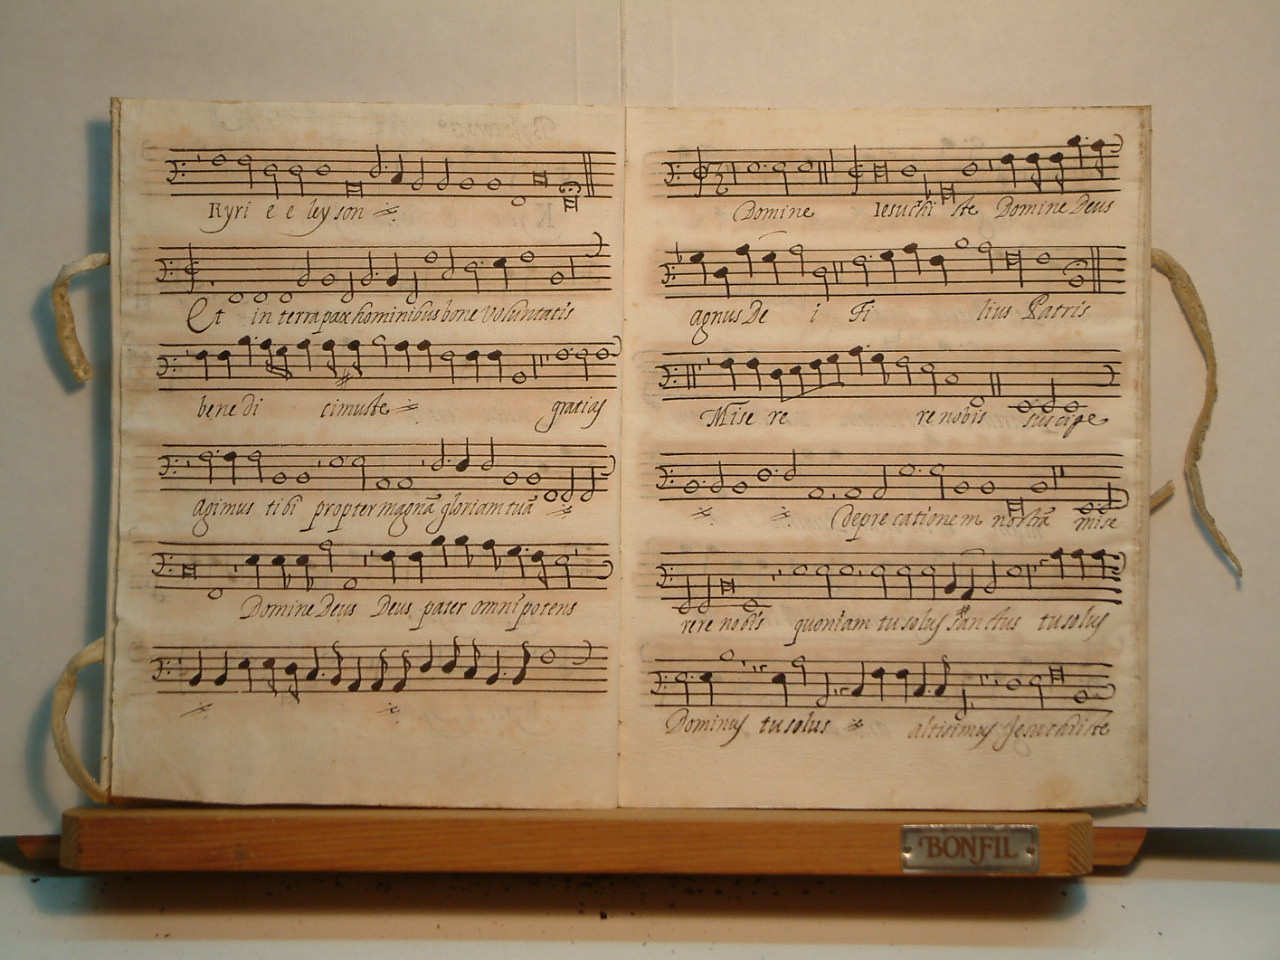 Kyri e e ley son
Et in terra pax hominibus bone voluntatis
bene di cimuste gratias
Agimus tibi propter magnã gloriam tuã
Domine Deus Deus pater omnipotens
Domine Iesuchi ste Domine Deus
agnus De i Fi lius Patris
Mise re re nobis suscipe
depre cationem nostrã mise
rere nobis quoniam tu solus sanctus tu solus
Dominus tu solus altisimus Jesuchriste
BONFIL